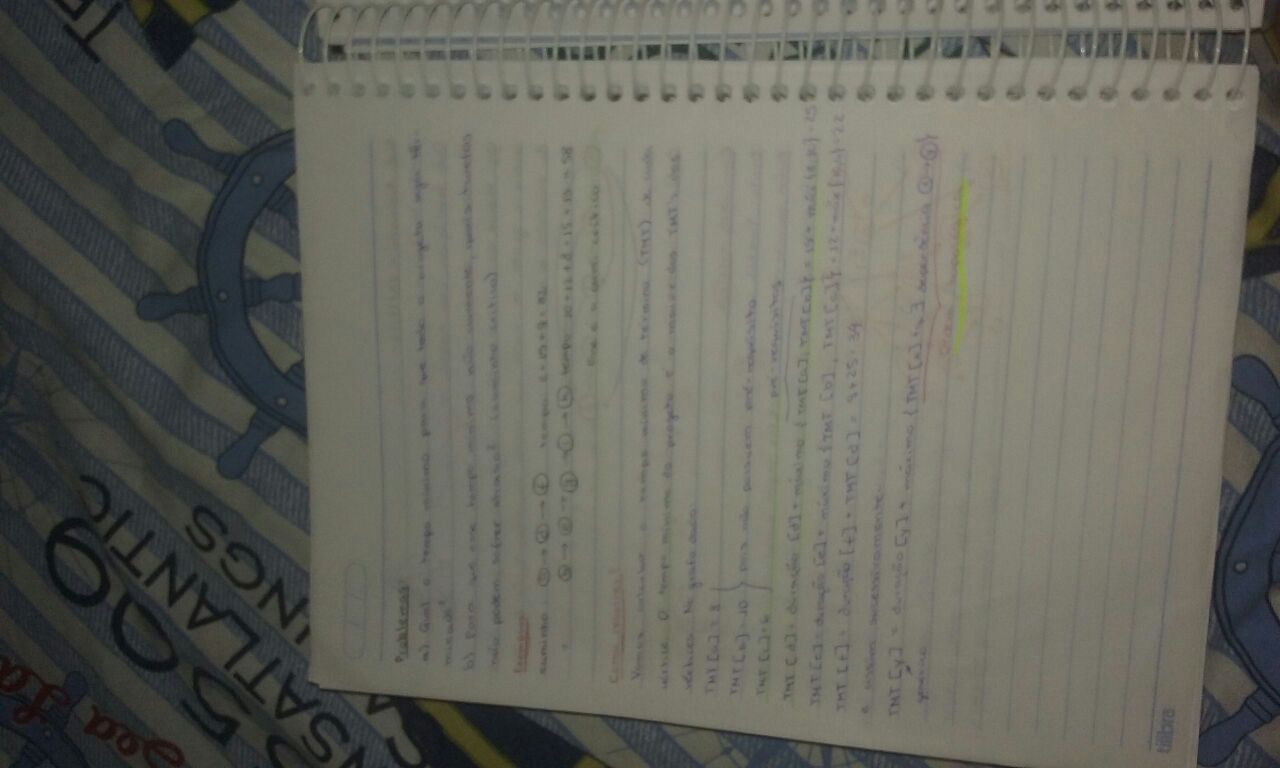 Sea
5509
NSATLANTIC
INGS
SA
TE
Problemas:
a) Qual o tempo mínimo para que todo o projeto seja ter-
minado?
b) Para que esse tempo mínimo não aumente, quais tarefas
não podem sofrer atraso? (caminho crítico)
Exemplos:
caminho: a → d → f tempo
b → e → g → i → tempo 10+12+8+15+13 = 58
esse é o cam. crítico
Como resolver?
Vamos calcular o tempo mínimo de término (TMT) de cada
vértice. O tempo mínimo do projeto é o maior dos TMT's dos
vértices. No grafo dado:
TMT[a] = 8
TMT[b] = 10 pois não possuem pré-requisito
TMT[c] =
pré-requisitos
TMT[d] = duração[d] + máximo {TMT[a], TMT[b]} = 15 + = 25
TMT[e] = duração[e] + máximo {TMT[b], TMT[c]} = 12 + = 22
TMT[f] = duração[f] + TMT[d] = 9+25 = 34
e assim sucessivamente...
TMT[y] = duração[y] + máximo {TMT[x] dependência x → y}
genérico
tilibra